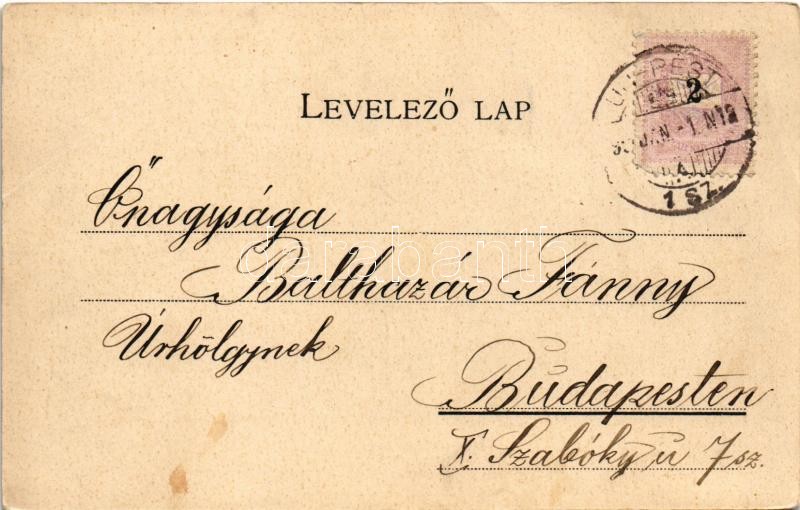 LEVELEZŐ LAP
UJPEST
2
JAN. - 1. N12
1 SZ.
Őnagysága
Balthazár Fánny
Úrhölgynek
Budapesten
X. Szabóky u 7 sz.
darabanth